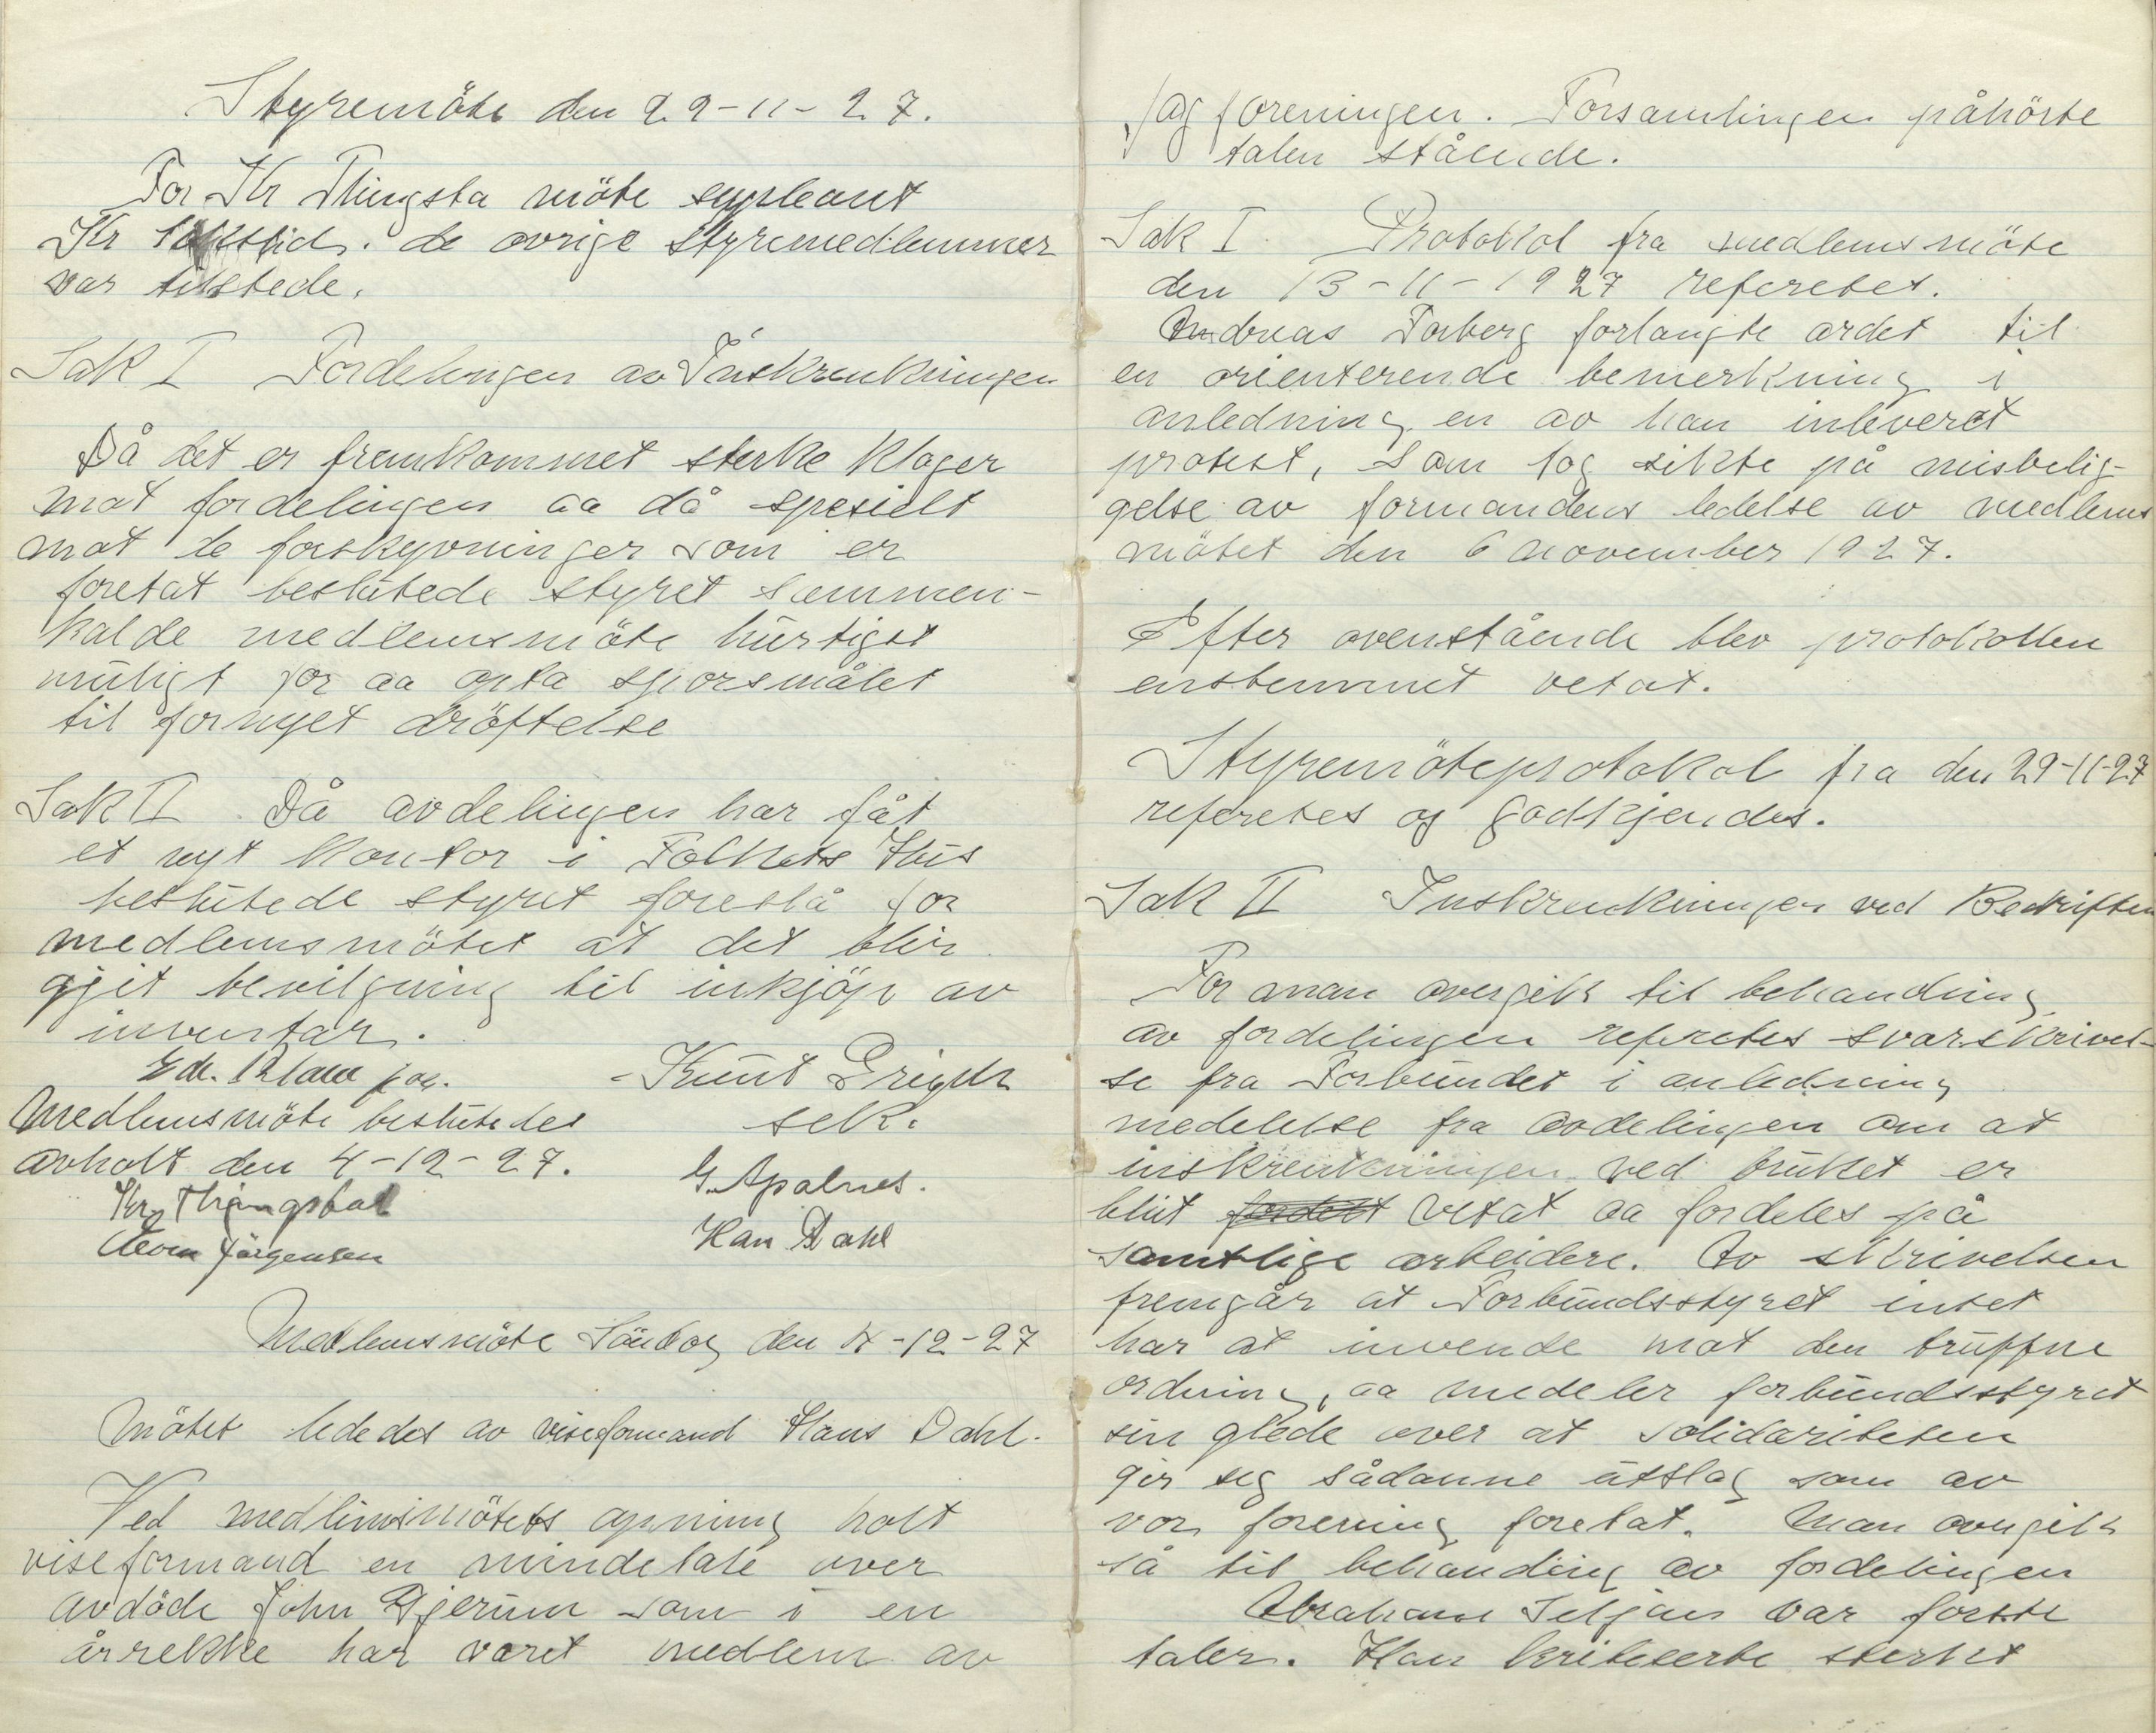 Styremöte den 29-11-27.
For Kr Thingsta möte supleant
Kr de ovrige styremedlemmer
var tilstede.
Sak I Fordelingen av Inskrenkningen
Då det er fremkommet sterke klager
mot fordelingen aa då spesielt
mot de forskyvninger som er
foretat beslutede styret sammen-
kalde medlemsmöte hürtigst
müligt for aa opta sporsmålet
til fornyet dröftelse
Sak II. Då avdelingen har fåt
et nyt kontor i Folkets Hüs
beslütede styret foreslå for
medlemsmötet at det blir
gjit bevilgning til inkjöp av
inventar.
Edv. for. Knüt
Medlemsmöte beslütedes sek.
avholt den 4-12-27. G. Apalnes.
Kr. Thingstad
Jörgensen Han Dahl
Medlemsmöte Söndag den 4-12-27
Mötet lededes av viseformand Hans Dahl.
Ved medlemsmötets apning holt
viseformand en mindetale over
avdöde John Gjerüm som i en
årrekke har voret medlem av
fagforeningen. Forsamlingen påhörte
talen stående.
Sak I. Protokol fra medlemsmöte
den 13-11-1927 referetes.
Andreas Forberg forlangte ordet til
en orienterende bemerkning i
anledning en av han inleveret
protest, som tog sikte på misbelig-
gelse av formandens ledelse av medlems
mötet den 6 november 1927.
Efter ovenstående blev protokollen
enstemmit vetat.
Styremöteprotokol fra den 29-11-27
referetes og godkjendes.
Sak II Inskrenkningen ved Bedriften
For man overgikk til behandling
av fordelingen referetes svarskrivel-
se fra Forbundet i anledning
medelelse fra avdelingen om at
inskrenkningen ved brüket er
blit fordelt vetat aa fordeles på
samtlige arbeidere. Av skrivelsen
fremgår at Forbündsstyret intet
har at invende mot den trüffne
ordning, aa medeler forbündsstyret
sin glede over at solidariteten
gir seg sådanne ütslag som av
vor forening foretat. Man overgikk
så til behanding av fordelingen
Abraham Seljås var förste
taler. Han kritiserte sterket